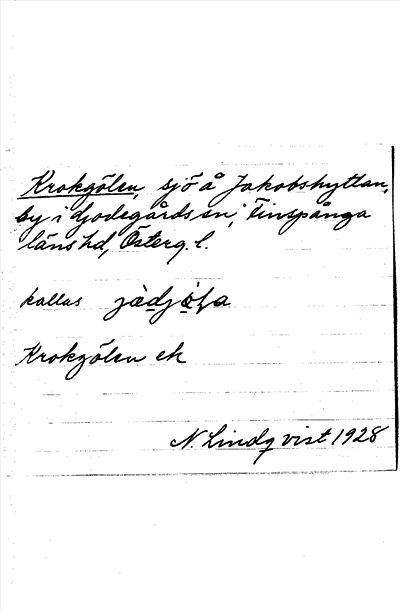 Krokgölen, sjö å Jakobshyttan,
by i Godegårds sn, Finspånga
läns hd, Österg. l.
kallas
Krokgölen ek
N. Lindqvist 1928